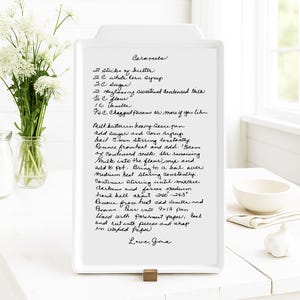 Caramels
2 sticks of butter
2 C white corn syrup
2 C sugar
2 sweetened condensed milk
C flour
Vanilla
C Chopped Pecans or more if you like
Melt butter in heavy sauce pan
add sugar and corn syrup
heat stirring constantly
Remove from heat and add
of condensed milk, stir remaining
milk into the flour, mix and
add to pot. Bring to a boil over
medium heat stirring constantly
Continue stirring until mixture
darkens and forms medium
hard ball about 240°-245°
Remove from heat add vanilla and
Pecans. Pour into 9x13 pan
lined with Parchment paper, cool
and cut into pieces and wrap
in Waxed Paper
Love,